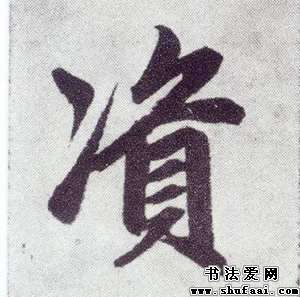 資
书法爱网
www.shufaai.com